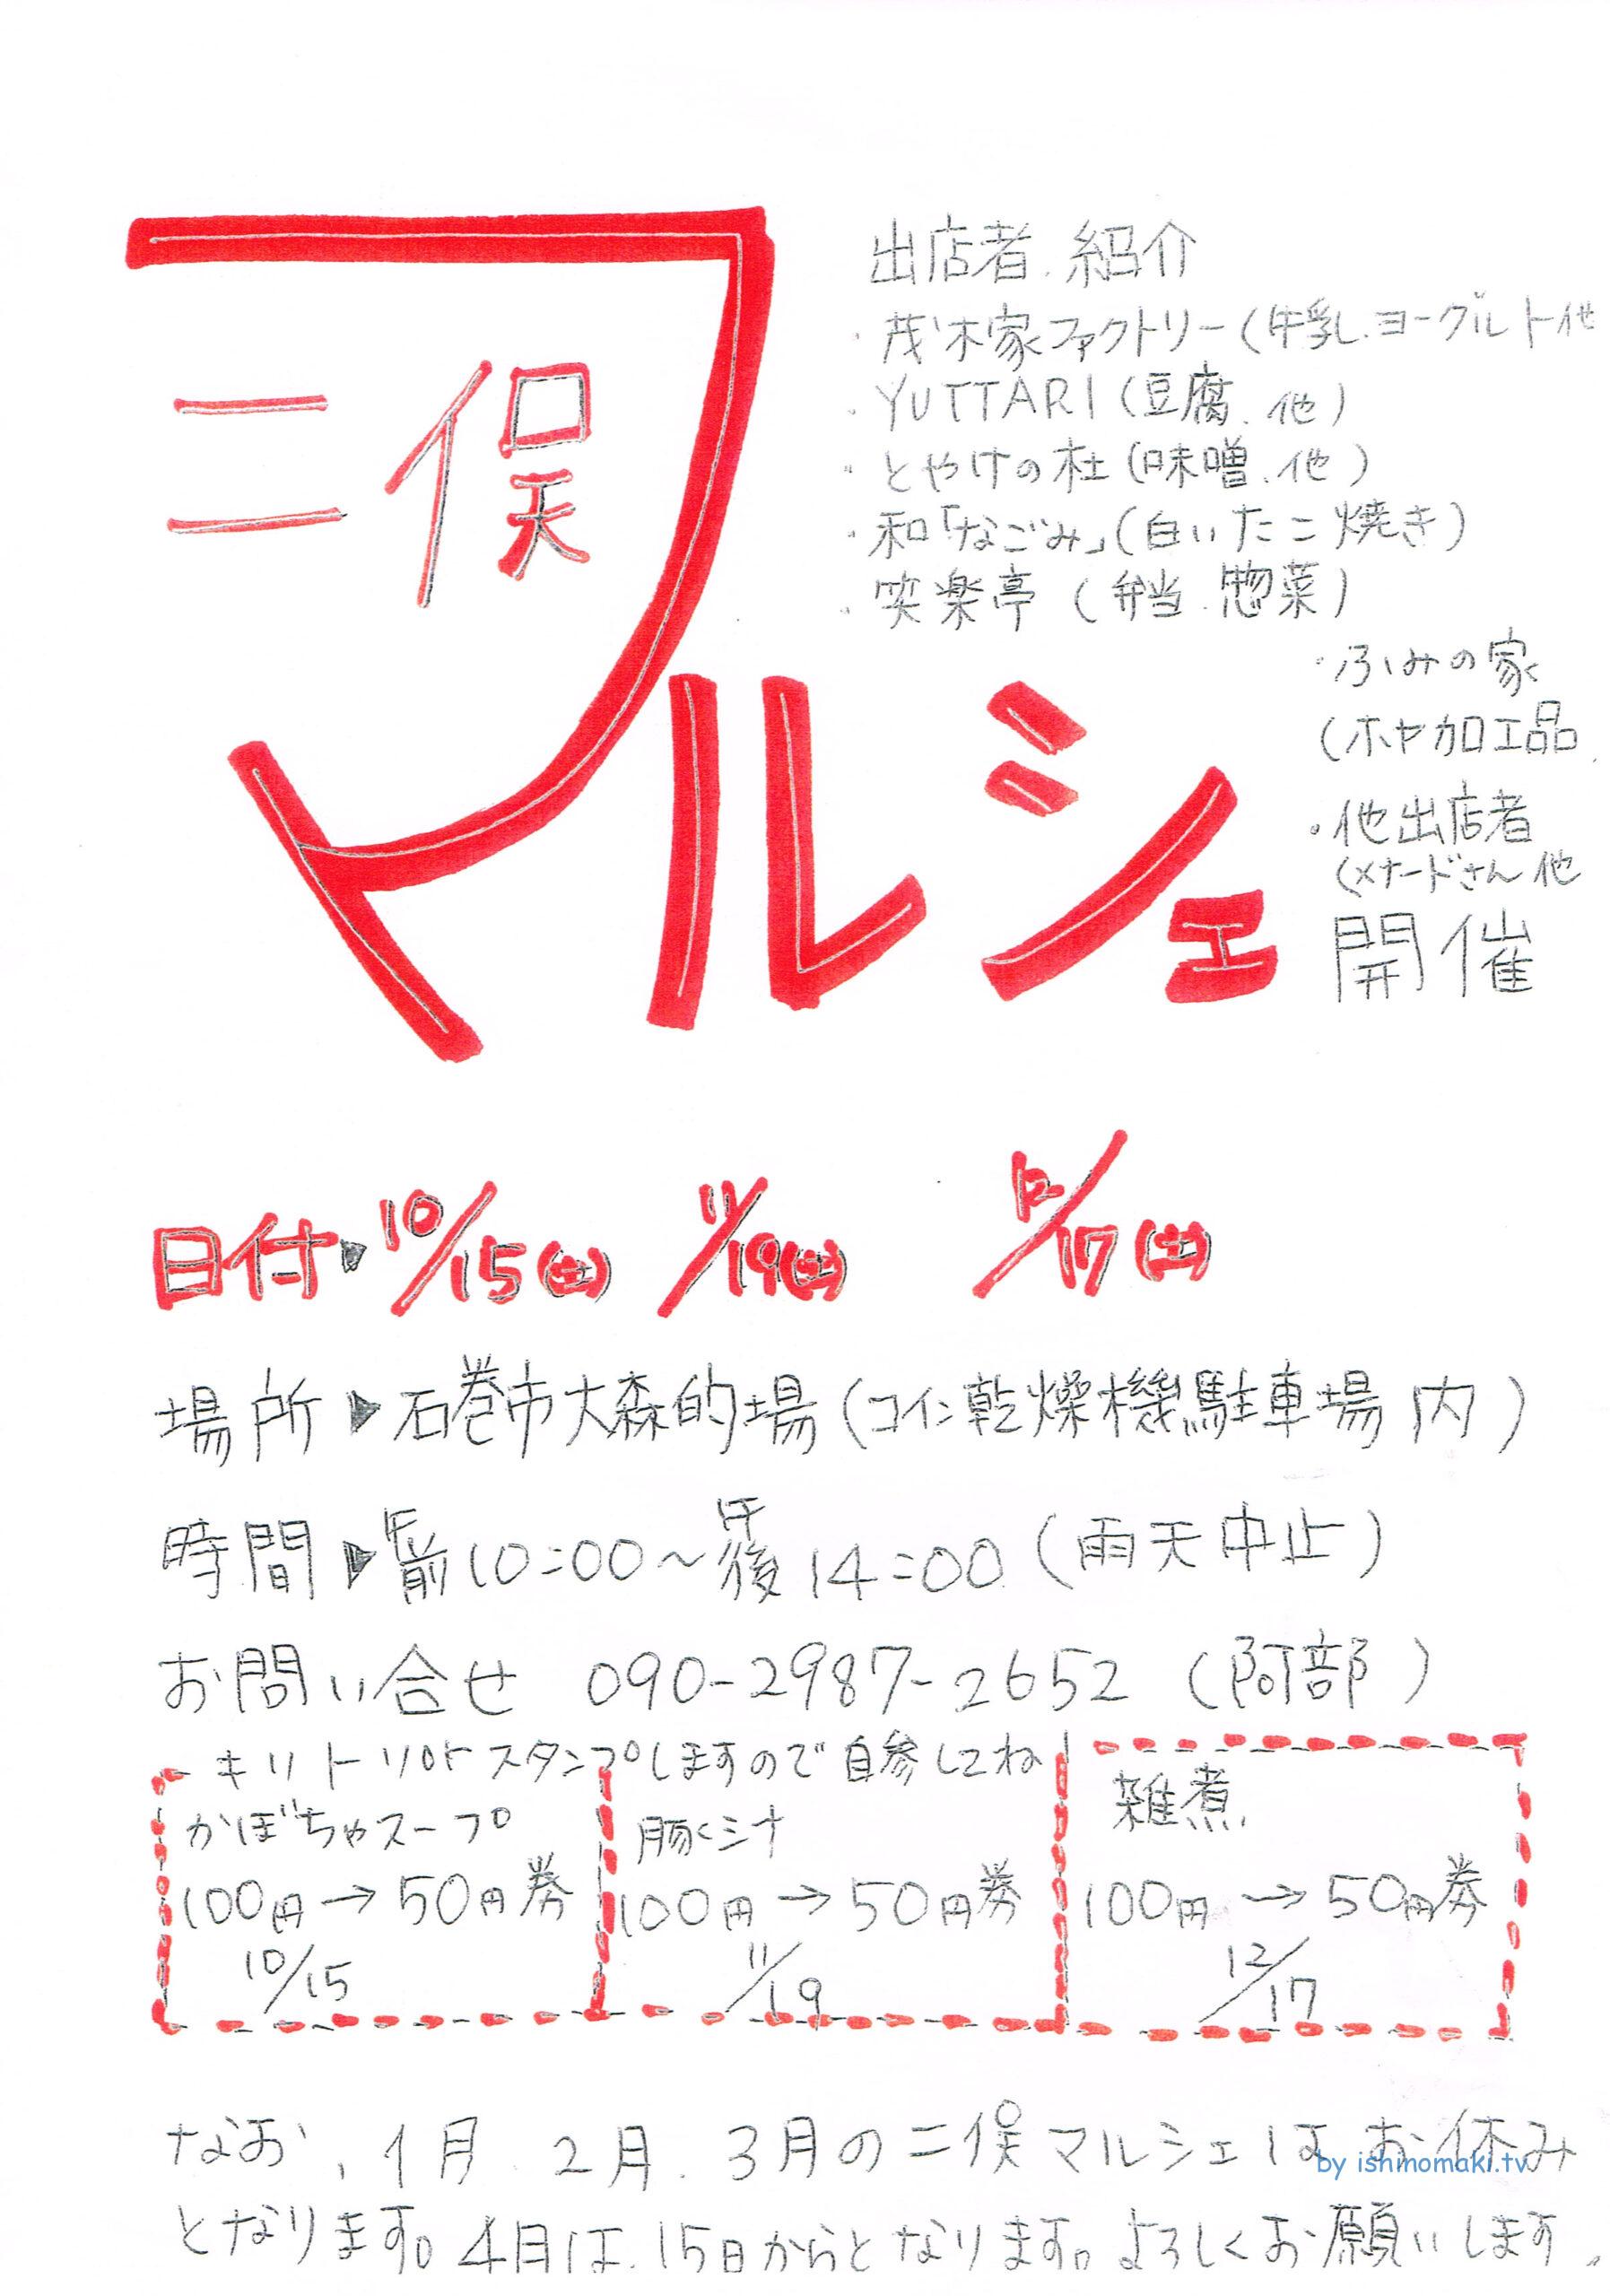 二俣
マルシェ
出店者 紹介
・茂木家ファクトリー(牛乳.ヨーグルト他
・YUTTARI(豆腐.他)
・とやけの杜(味噌.他)
・和「なごみ」(白いたこ焼き)
・笑楽亭(弁当.惣菜)
・ふみの家
(ホヤ加工品
・他出店者
(メナードさん他
開催
日付▶10/15(土) 11/19(土) 12/17(土)
場所▶石巻市大森的場(コイン乾燥機駐車場内)
時間▶午前10:00~午後14:00(雨天中止)
お問い合せ 090-2987-2652 (阿部)
キリトリ スタンプしますので自参してね
かぼちゃスープ
100円→50円券
10/15
豚くシナ
100円→50円券
11/19
雑煮
100円→50円券
12/17
なお、1月.2月.3月の二俣マルシェはお休み
となります。4月は.15日からとなります。よろしくお願いします。
by ishinomaki.tv